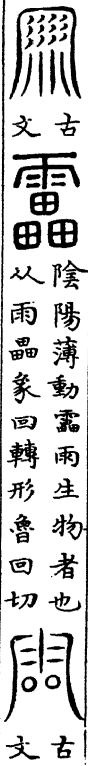 古文
靁
陰陽薄動靁雨生物者也
从雨畾象回轉形魯回切
古文